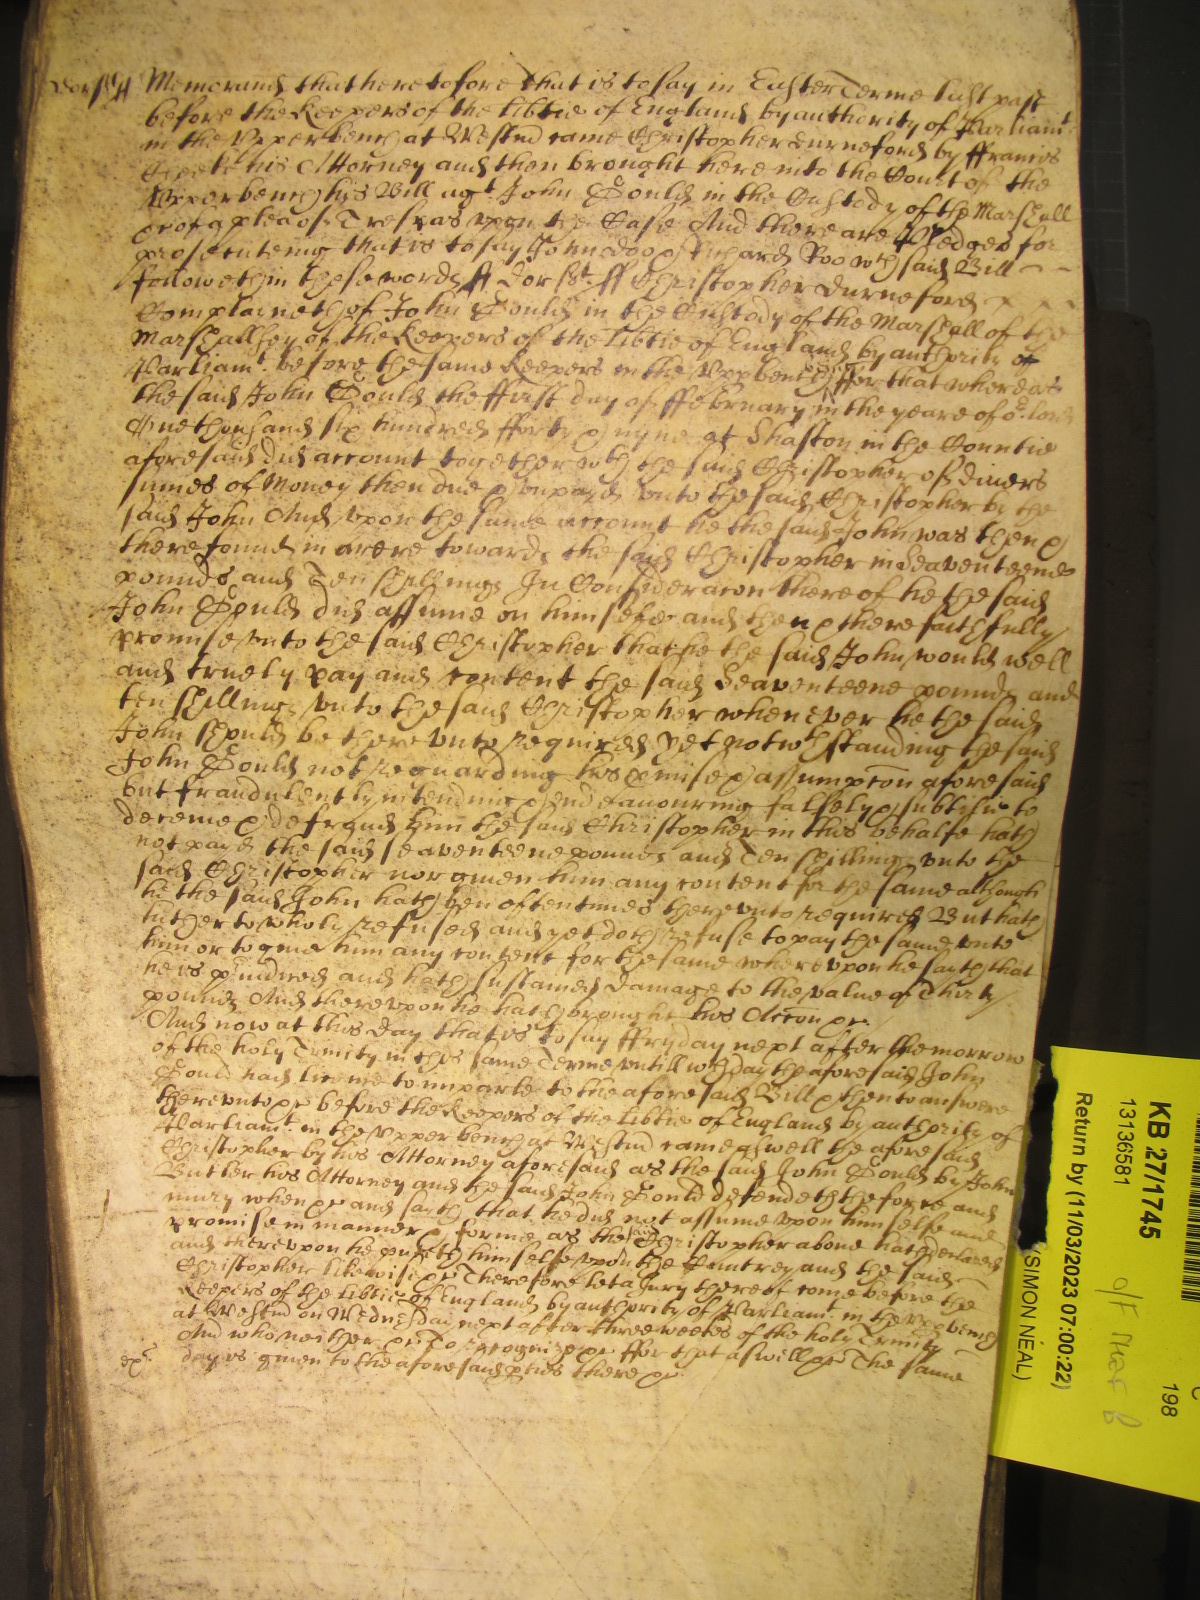 Dorsett ss Memorand that heretofore that is to say in Easter Terme last past
before the Keepers of the libtie of England by authority of Parliamt
in the Upper bench at Westmr came Christopher Durneford by ffrancis
his Attorney and then brought here into the Court of the
Upper bench his Bill agt John Gould in the Custody of the Marshall
&c of a plea of Trespas upon the Case And there are Pledges for
prosecuteing that is to say John Doo & Richard Roo wch said Bill
followeth in these words ss Dorst ss Christopher Durneford
Complaineth of John Gould in the Custody of the Marshall of the
Marshallsey of the Keepers of the libtie of England by authority of
Parliamt before the same Keepers in the Uppbench ffor that whereas
the said John Gould the ffirst day of ffebruary in the yeare of or lord
One thousand six hundred fforty & nyne at Shaston in the Countie
aforesaid did account together wth the said Christopher of divers
sumes of Money then due & unpayd unto the said Christopher by the
said John And upon the same account he the said John was then &
there found in arere towards the said Christopher in Seaventeene
pounds and Ten shillings In Consideracon thereof he the said
John Gould did assume on himselfe and then & there faithfully
promise unto the said Christopher that he the said John would well
and truely pay and content the said Seaventeene pounds and
ten shillings unto the said Christopher whenever he the said
John should be thereunto required Yet notwthstanding the said
John Gould not reguarding his pmise & assumpcon aforesaid
but fraudulently intending & endeavouring falsely & subtilly to
deceive & defraud him the said Christopher in this behalfe hath
not paid the said seaventeene pounds and Ten shillings unto the
said Christopher nor given him any content for the same although
he the said John hath ben oftentimes thereunto required But hath
hitherto wholy refused and yet doth refuse to pay the same unto
him or to give him any content for the same whereupon he saith that
he is piudiced and hath sustained damage to the value of Thirty
pounds And thereupon he hath brought his Accon &c
And now at this day that is to say ffryday next after the morrow
of the holy Trinity in this same Terme untill wch day the aforesaid John
Gould had licence to imparle to the aforesaid Bill & then to answere
thereunto &c before the Keepers of the libtie of England by authority of
Parliamt in the Upper bench at Westmr came aswell the aforesaid
Christopher by his Attorney aforesaid as the said John Gould by John
Butler his Attorney and the said John Gould defendeth the force and
iniury when &c and saith that he did not assume upon himselfe and
promise in manner & forme as the said Christopher above hath declared
and thereupon he putteth himselfe upon the Countrey and the said
Christopher likewise &c Therefore let a Jury thereof come before the
Keepers of the libtie of England by authority of Parliamt in the Uppbench
at Westmr on Wednesday next after three weekes of the holy Trinity
And who neither &c To recognize &c ffor that aswell &c The same
day is given to the aforesaid pties there &c
KB 27/1745
13136581
Return by (11/03/2023 07:00:22)
(SIMON NEAL)
C
198